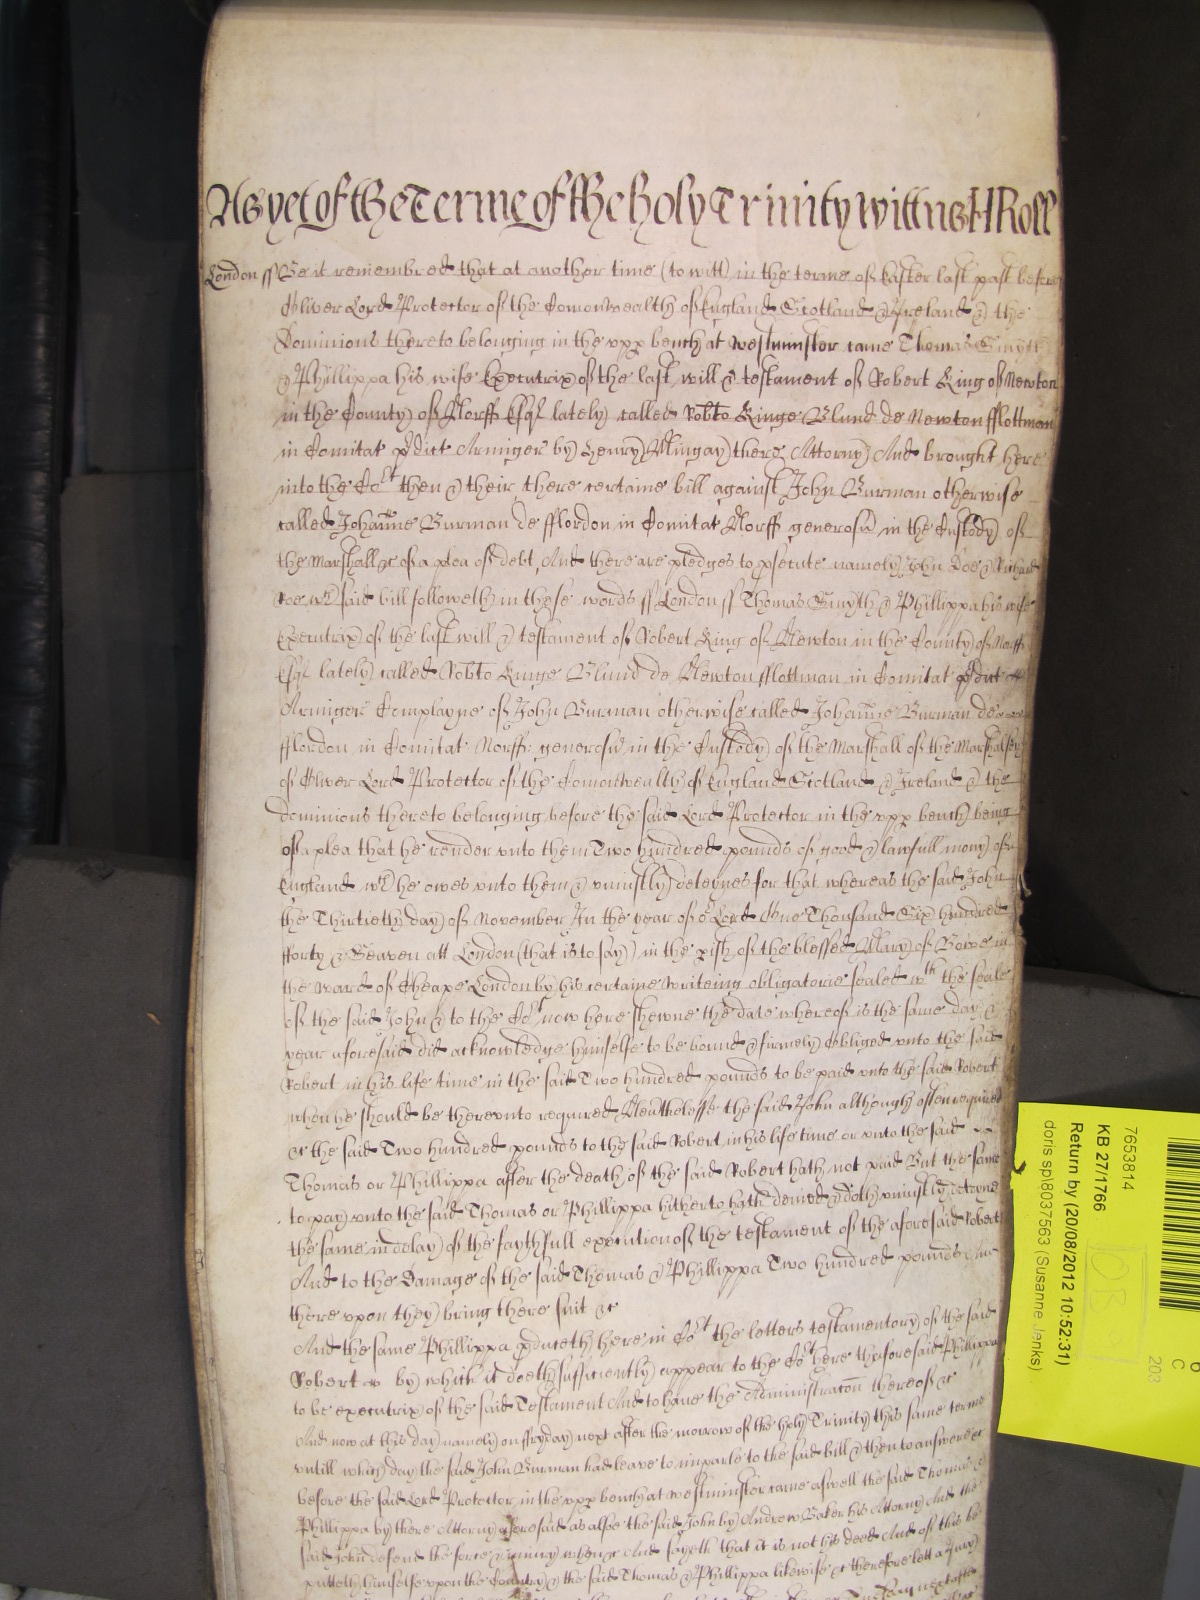 As yet of the Terme of the holy Trinity wittnes H Roll
London ss Be it remembred that at another time (to witt) in the terme of Easter last past before
Oliver Lord Protector of the Comonwealth of England Scotland & Ireland & the
Dominions thereto belonging in the upp bench at Westminster came Thomas Smyth
& Phillippa his wife Executrix of the last will & testament of Robert King of Newton
in the County of Norff Esqr lately called Robto Kinge Blund de Newton fflottman
in Comitat pdict Armiger by Henry Mingay there Attorny And brought here
into the Cort then & their there certaine bill against John Burman otherwise
called Johanne Burman de fflordon in Comitat Norff generosu in the Custody of
the Marshall &c of a plea of debt And there are pledges to psecute namely John Doe & Richard
Roe wch said bill followeth in these words ss London ss Thomas Smyth & Phillippa his wife
Executrix of the last will & testament of Robert King of Newton in the County of Norff
Esqr lately called Robto Kinge Blund de Newton fflottman in Comitat pdict
Armiger Complayne of John Burman otherwise called Johanne Burman de
fflordon in Comitat Norff generosu in the Custody of the Marshall of the Marshalsey
of Oliver Lord Protector of the Comonwealth of England Scotland & Ireland & the
dominions thereto belonging before the said Lord Protector in the upp bench being
of a plea that he render unto them Two hundred pounds of good & lawfull mony of
England wch he owes unto them & uniustly deteynes for that whereas the said John
the Thirtieth day of November In the year of or Lord One Thousand Six hundred
fforty & Seaven att London (that is to say) in the pish of the blessed Mary of Bowe in
the Ward of Cheape London by his certaine writeing obligatorie sealed wth the seale
of the said John & to the Cort now here shewne the date whereof is the same day &
year aforesaid did acknowledge himselfe to be bound & firmely Obliged unto the said
Robert in his life time in the said Two hundred pounds to be paid unto the said Robert
when he should be thereunto required Neutheless the said John although often required
&c the said Two hundred pounds to the said Robert in his life time or unto the said
Thomas or Phillippa after the death of the said Robert hath not paid But the same
to pay unto the said Thomas or Phillippa hitherto hath denied & doth uniustly deteyne
the same in delay of the faythfull execution of the testament of the aforesaid Robert
And to the Damage of the said Thomas & Phillippa Two hundred pounds And
there upon they bring there suit &c
And the same Phillippa pduceth here in Cort the letters testamentory of the said
Robert by which it doeth sufficiently appear to the Cort here thaforesaid Phillippa
to be executrix of the said Testament And to have the Administracon thereof &c
And now at this day namely on ffryday next after the morrow of the holy Trinity this same terme
untill which day the said John Burman had leave to imparle to the said bill & then to answere &c
before the said Lord Protector in the upp bench at westminster came aswell the said Thomas &
Phillippa by there Attorny aforesaid as alsoe the said John by Andrew Baker his Attorny And the
said John defend the force & iniury when &c And sayeth that it is not his deed And of this he
putteth himselfe upon the Country & the said Thomas & Phillippa likewise &c therefore lett a Jury
7653814
KB 27/1766
Return by (20/08/2012 10:52:31)
doris sp\8037563 (Susanne Jenks)
C
203